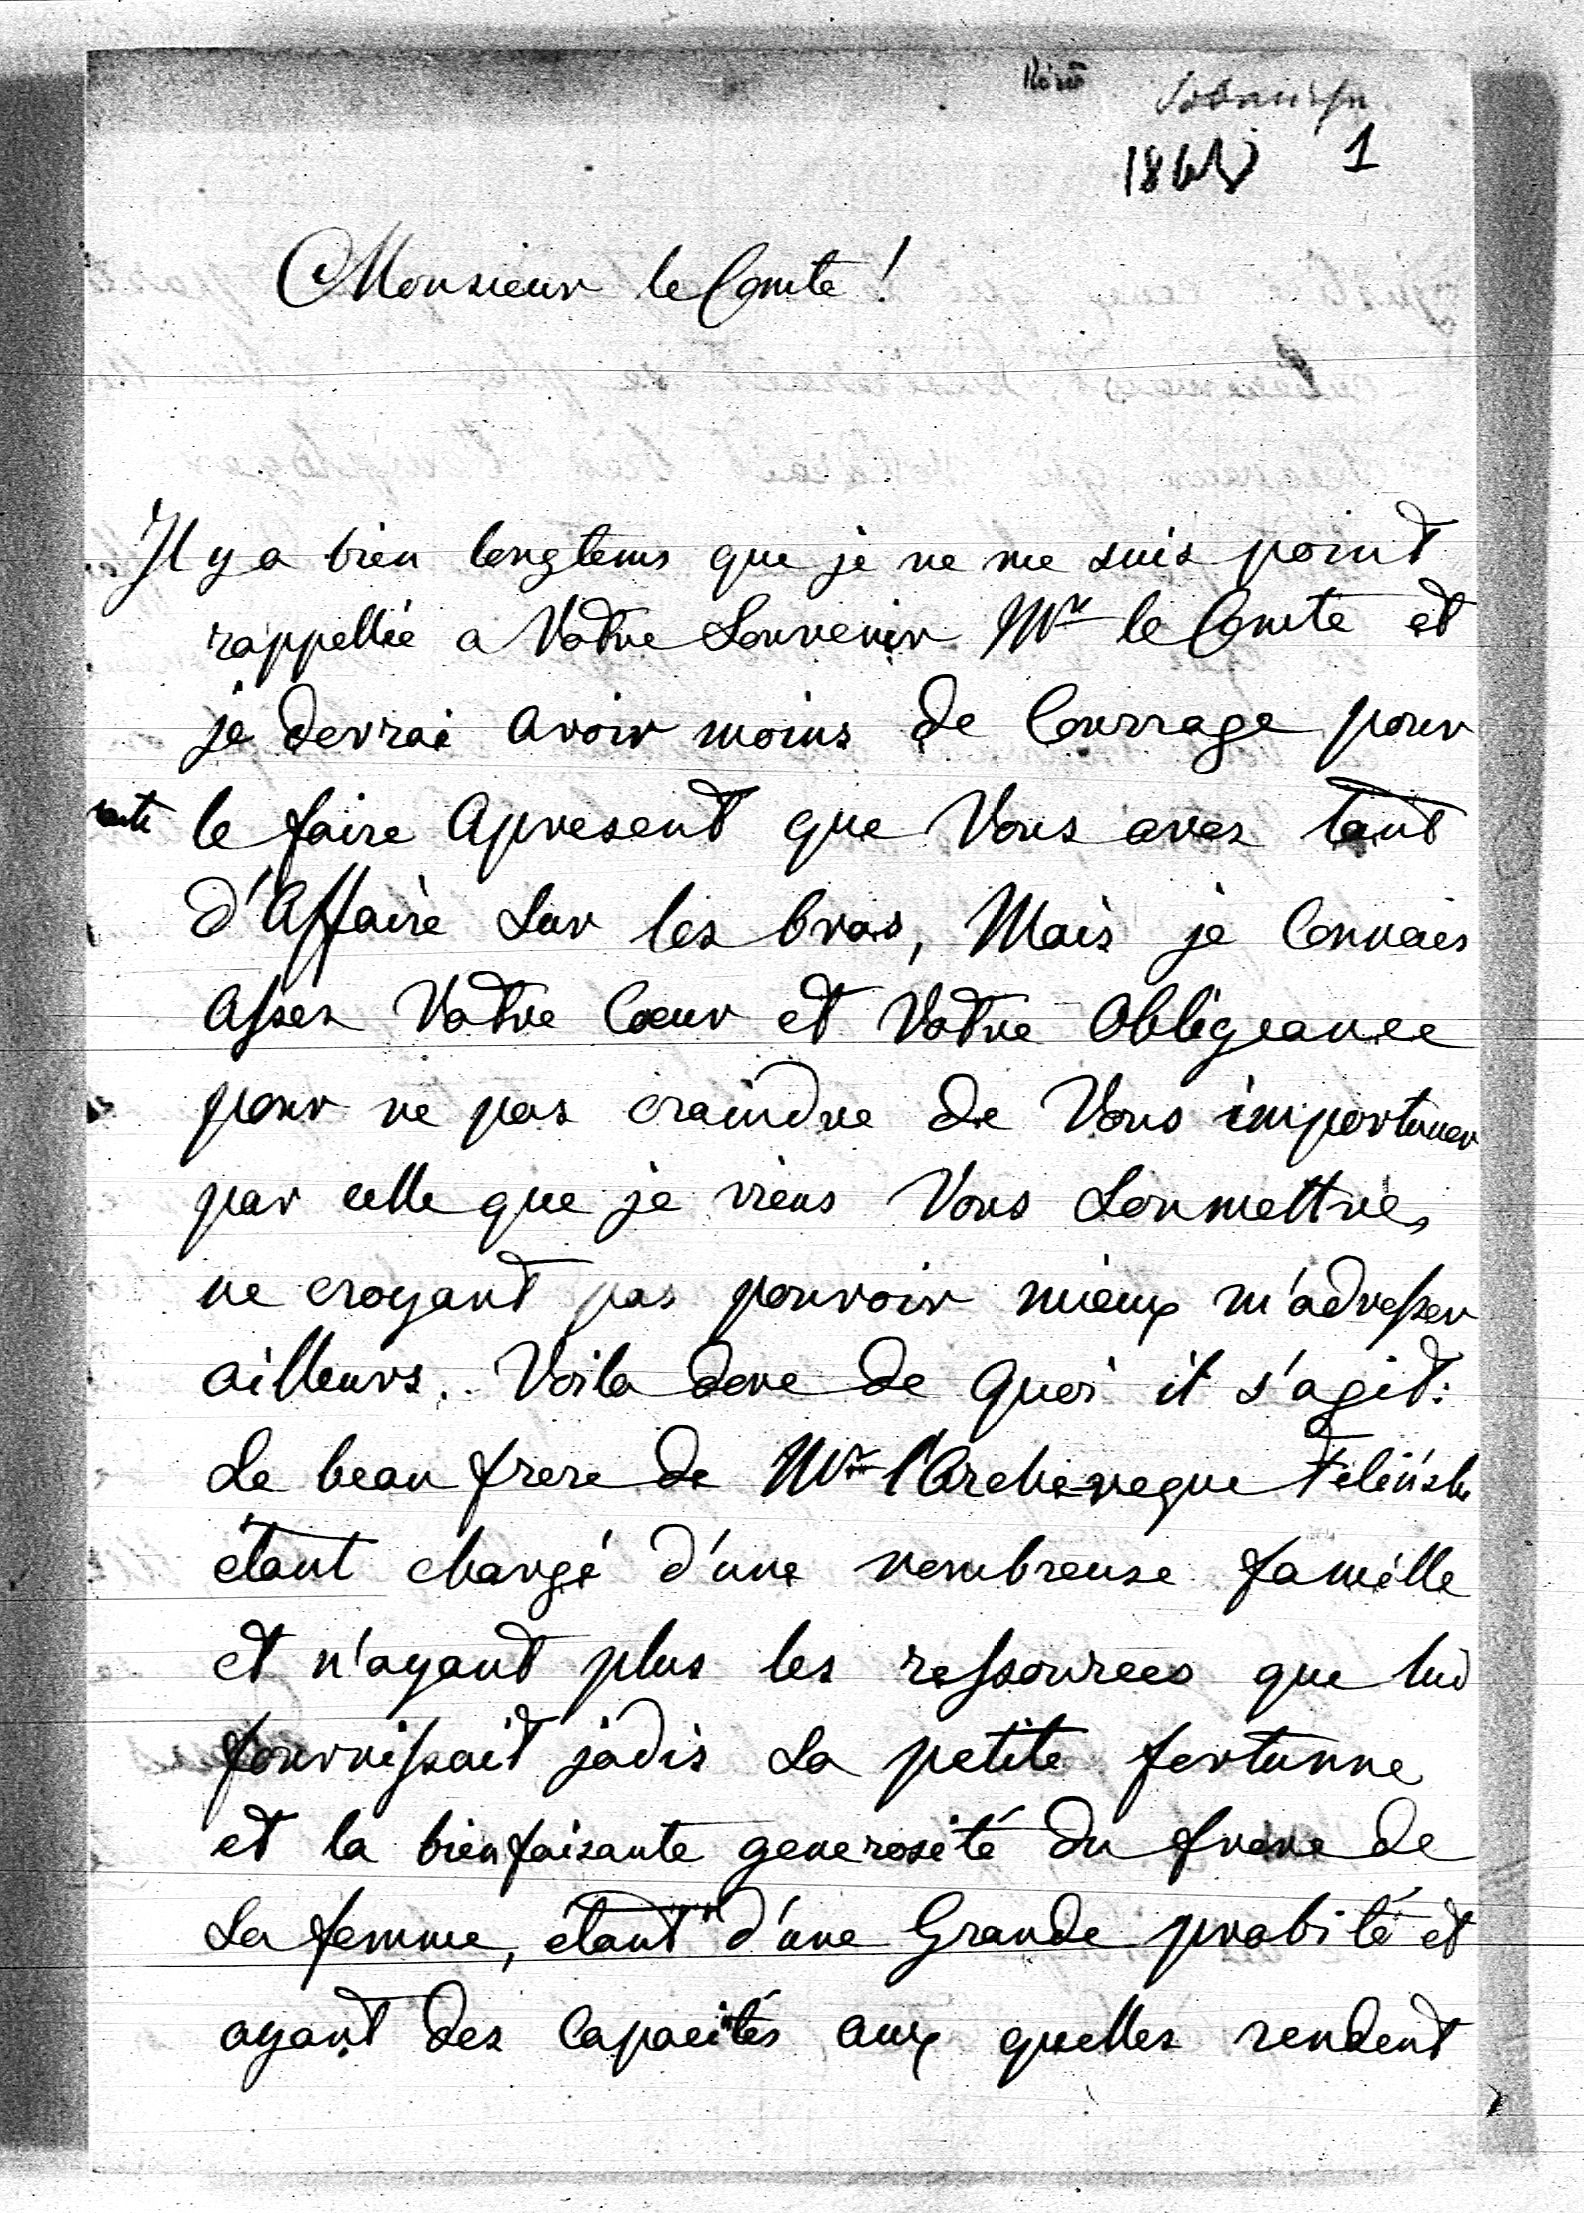 1
Monsieur le Comte!
Il y a bien longtems que je ne me suis point
rappellée a Votre Souvenir Mr le Comte et
je devrai avoir moins de Courrage pour
le faire apresent que Vous avez tant
d'Affaire Sur les bras, Mais je Connais
assez Votre Cœur et Votre Obligeance
pour ne pas craindre de Vous importuner
par celle que je viens Vous Soumettre,
ne croyant pas pouvoir mieux m'adresser
ailleurs. Voila donc de quoi it s'agit:
Le beau frere de Mr l'Archeveque Feliński
étant chargé d'une nombreuse famille
et n'ayant plus les ressources que lui
fournissait jadis Sa petite fortunne
et la bienfaisante generosité du frere de
Sa femme, étant d'une Grande probité et
ayant des Capacités aux quelles rendent